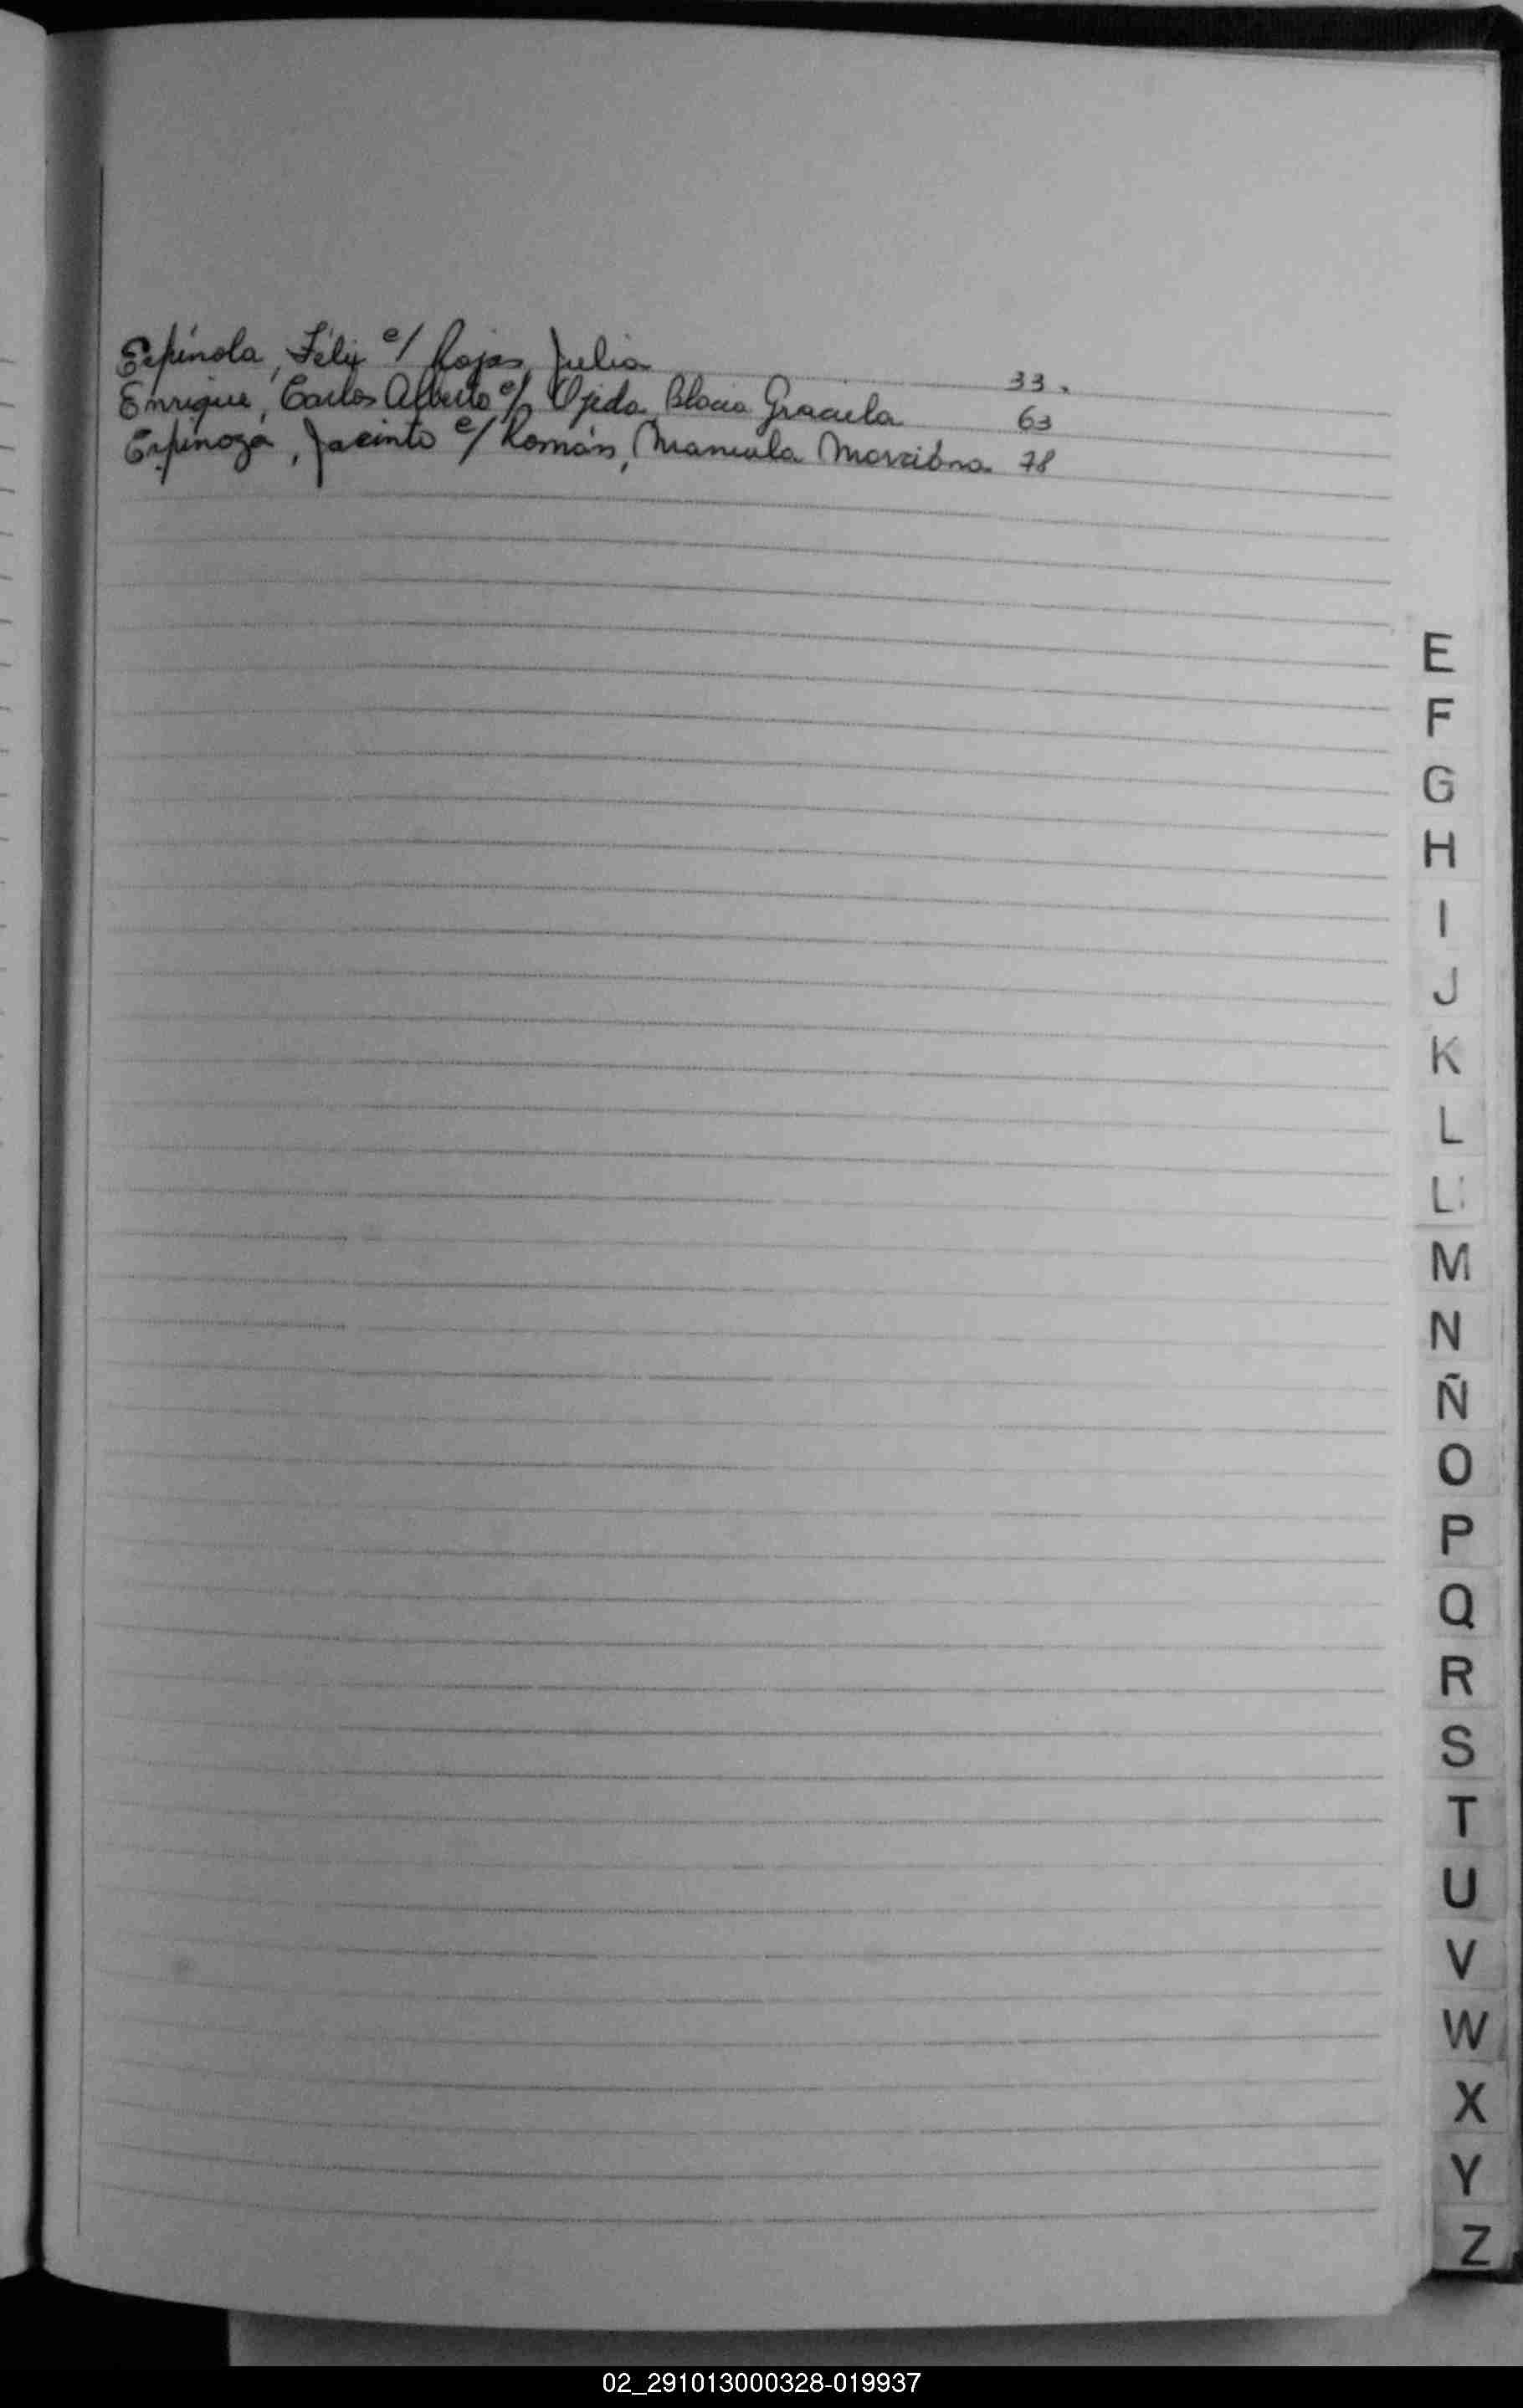 Espínola, Félix c/ Rojas, Julia 33.
Enrique, Carlos Alberto c/ Ojeda, Blacia Graciela 63
Espinoza, Jacinto c/ Román, Manuela 78
E
F
G
H
I
J
K
L
M
N
Ñ
O
P
Q
R
S
T
U
V
W
X
Y
Z
02_291013000328-019937